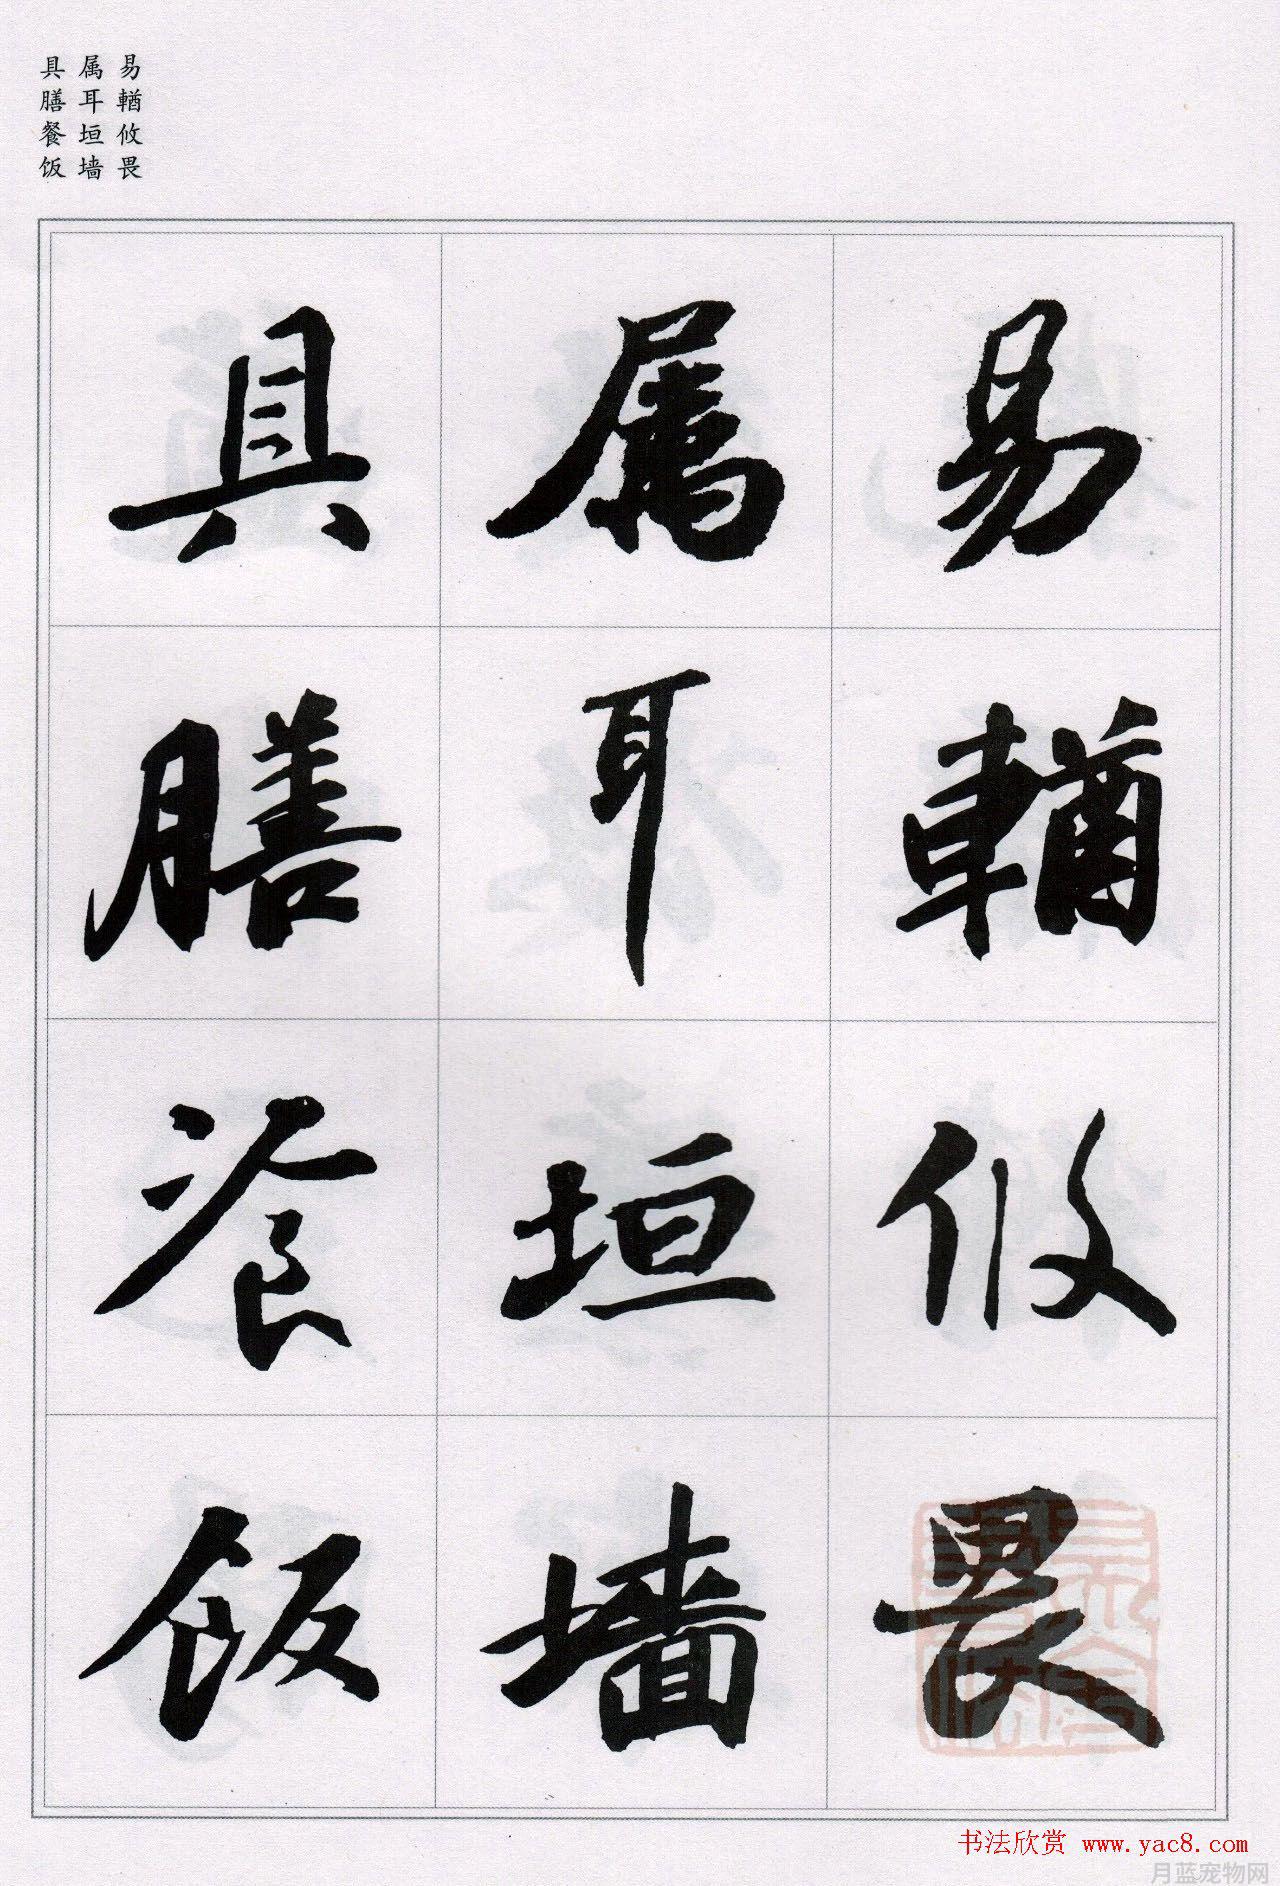 易輶攸畏
属耳垣墙
具膳餐饭
易輶攸畏
属耳垣墙
具膳飡饭
书法欣赏 www.yac8.com
月蓝宠物网